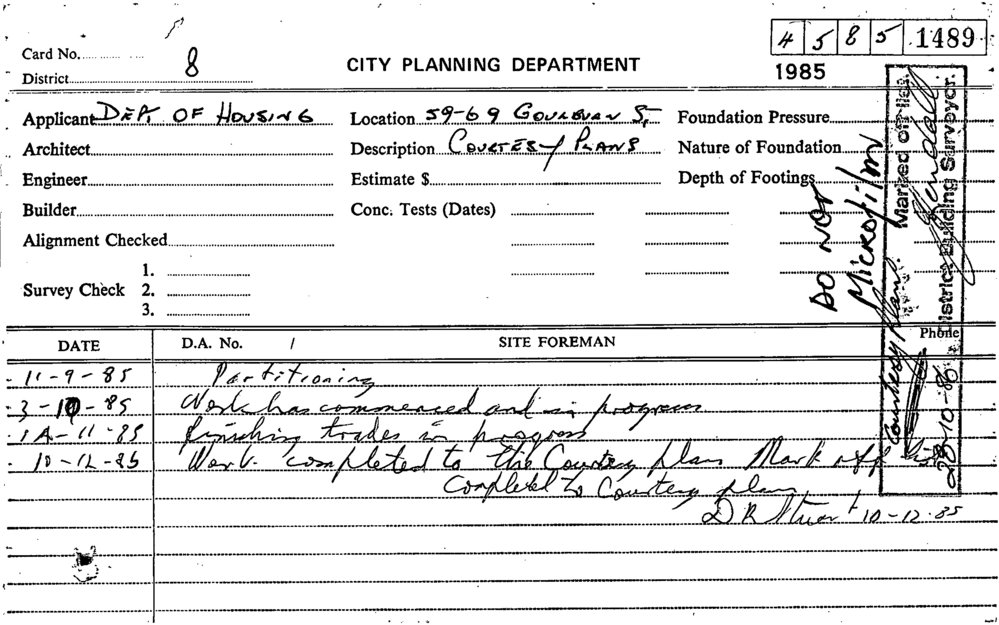 4 5 8 5 1489
Card No. 8
CITY PLANNING DEPARTMENT
1985
District
Applicant DEPT. OF HOUSING Location 59-69 GOULBURN ST, Foundation Pressure
Architect Description COURTESY PLANS Nature of Foundation
Engineer Estimate $ Depth of Footings
Builder Conc. Tests (Dates)
Alignment Checked
1.
Survey Check 2.
3.
DO NOT
MICROFILM
Courtesy Plans. Marked off Plan.
District Building Surveyor.
28-10-86
Phone
DATE D.A. No. / SITE FOREMAN
11-9-85 Partitioning
3-10-85 Work has commenced and is in progress
1A-11-85 Finishing trades in progress
10-12-85 Work completed to the Courtesy plan Mark off
completed to Courtesy plan
D R Stuart 10-12-85